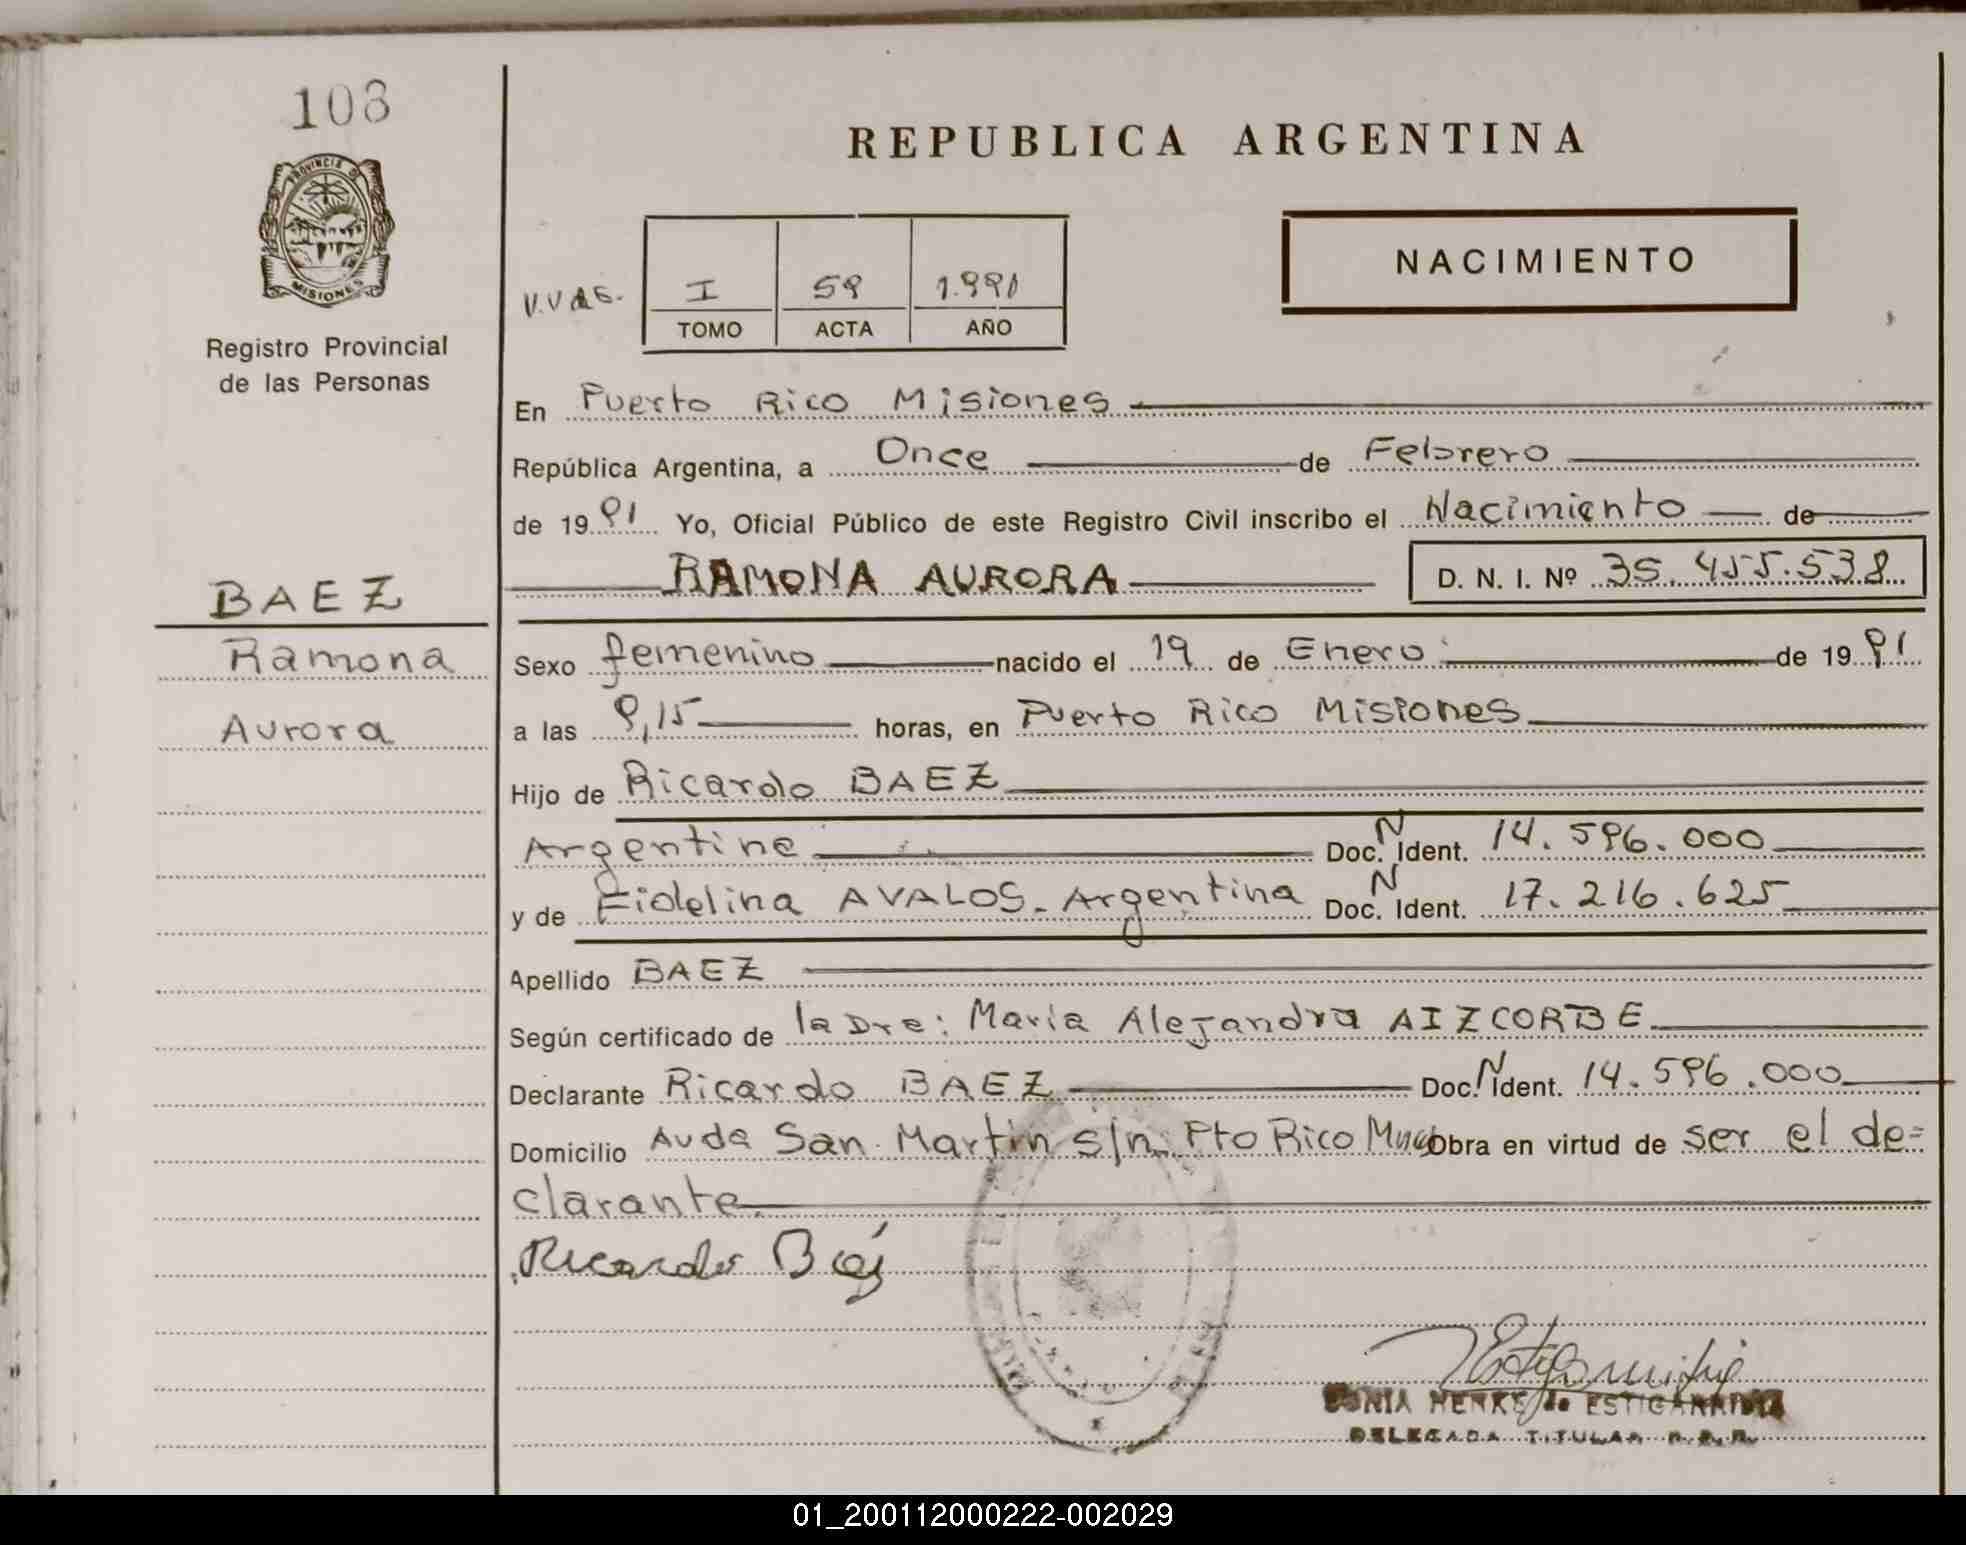 108
REPUBLICA ARGENTINA
PROVINCIA DE
MISIONES
Registro Provincial
de las Personas
NACIMIENTO
I 59 1.991
TOMO ACTA AÑO
En Puerto Rico Misiones
República Argentina, a Once de Febrero
de 1991 Yo, Oficial Público de este Registro Civil inscribo el Nacimiento de
RAMONA AURORA D. N. I. Nº 35.455.538
BAEZ
Ramona
Aurora
Sexo femenino nacido el 19 de Enero de 1991
a las 9,15 horas, en Puerto Rico Misiones
Hijo de Ricardo BAEZ
Argentina Doc. N Ident. 14.596.000
y de Fidelina AVALOS. Argentina Doc. N Ident. 17.216.625
Apellido BAEZ
Según certificado de la Dra: María Alejandra AIZCORBE
Declarante Ricardo BAEZ Doc. N Ident. 14.596.000
Domicilio Avda San Martín s/n. Pto Rico Obra en virtud de ser el de=
clarante.
Ricardo Baéz
SONIA HENKE de ESTIGARRIBIA
DELEGADA TITULAR R.P.P.
01_200112000222-002029